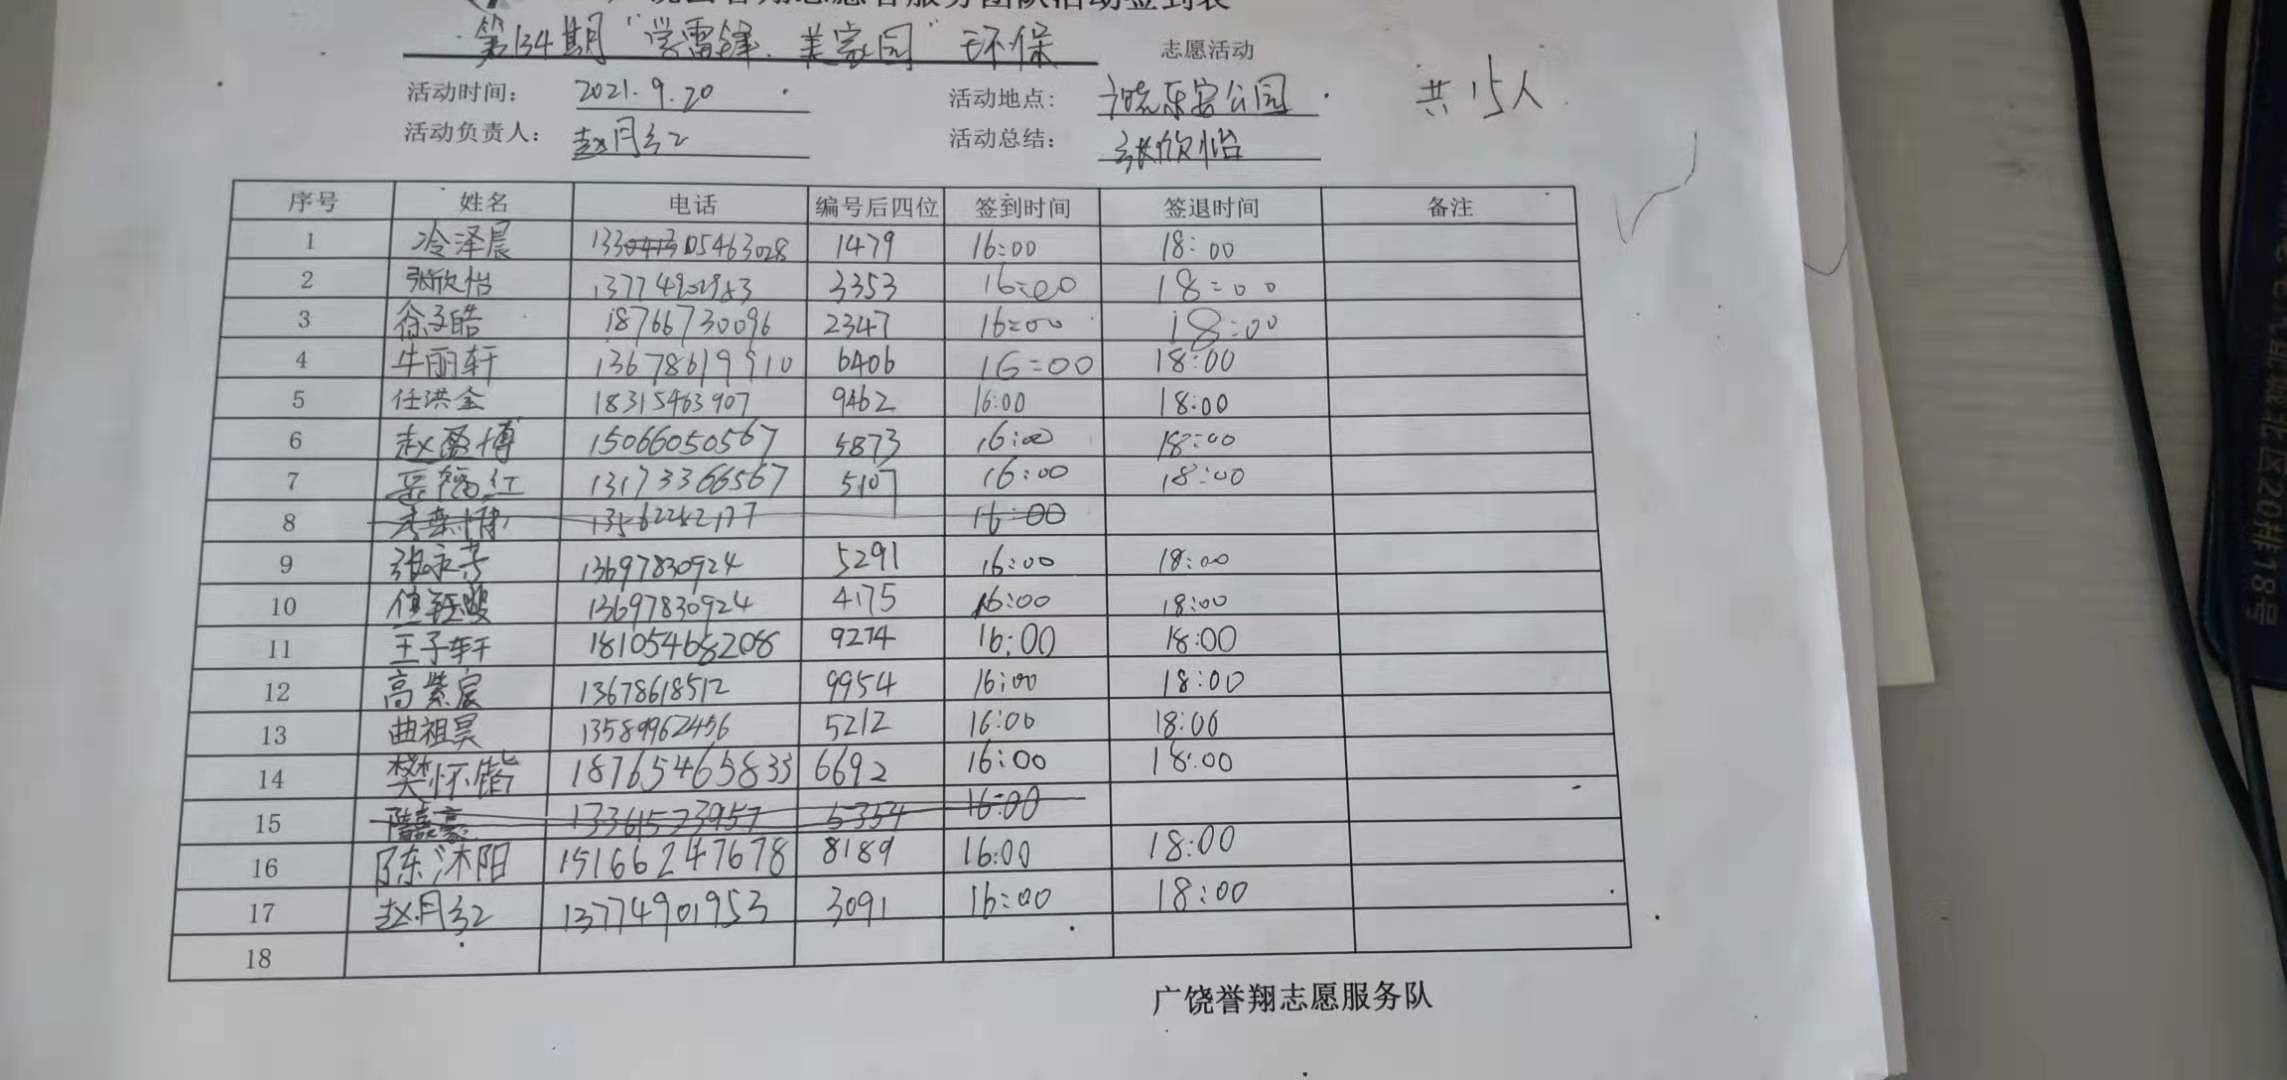 志愿服务团队活动签到表
第134期“学雷锋、美家园”环保 志愿活动
活动时间： 2021.9.20 活动地点： 广饶乐安公园 共15人
活动负责人： 赵月红 活动总结： 张欣怡
序号 姓名 电话 编号后四位 签到时间 签退时间 备注
1 冷泽晨 05463028 1479 16:00 18:00
2 张欣怡 3353 16:00 18:00
3 徐子皓 18766730096 2347 16:00 18:00
4 牛丽轩 13678619910 6406 16:00 18:00
5 任洪金 18315463907 9462 16:00 18:00
6 赵盈博 15066050567 5873 16:00 18:00
7 红 13173366567 5107 16:00 18:00
8 16:00
9 张永芳 13697830924 5291 16:00 18:00
10 13697830924 4175 16:00 18:00
11 王子轩 18105468208 9274 16:00 18:00
12 高紫宸 13678618512 9954 16:00 18:00
13 曲祖昊 13589962456 5212 16:00 18:00
14 樊怀锴 18765465833 6692 16:00 18:00
15 13361523957 5354 16:00
16 陈沐阳 15166247678 8189 16:00 18:00
17 赵月红 13774901953 3091 16:00 18:00
18
广饶誉翔志愿服务队
北区20排18号